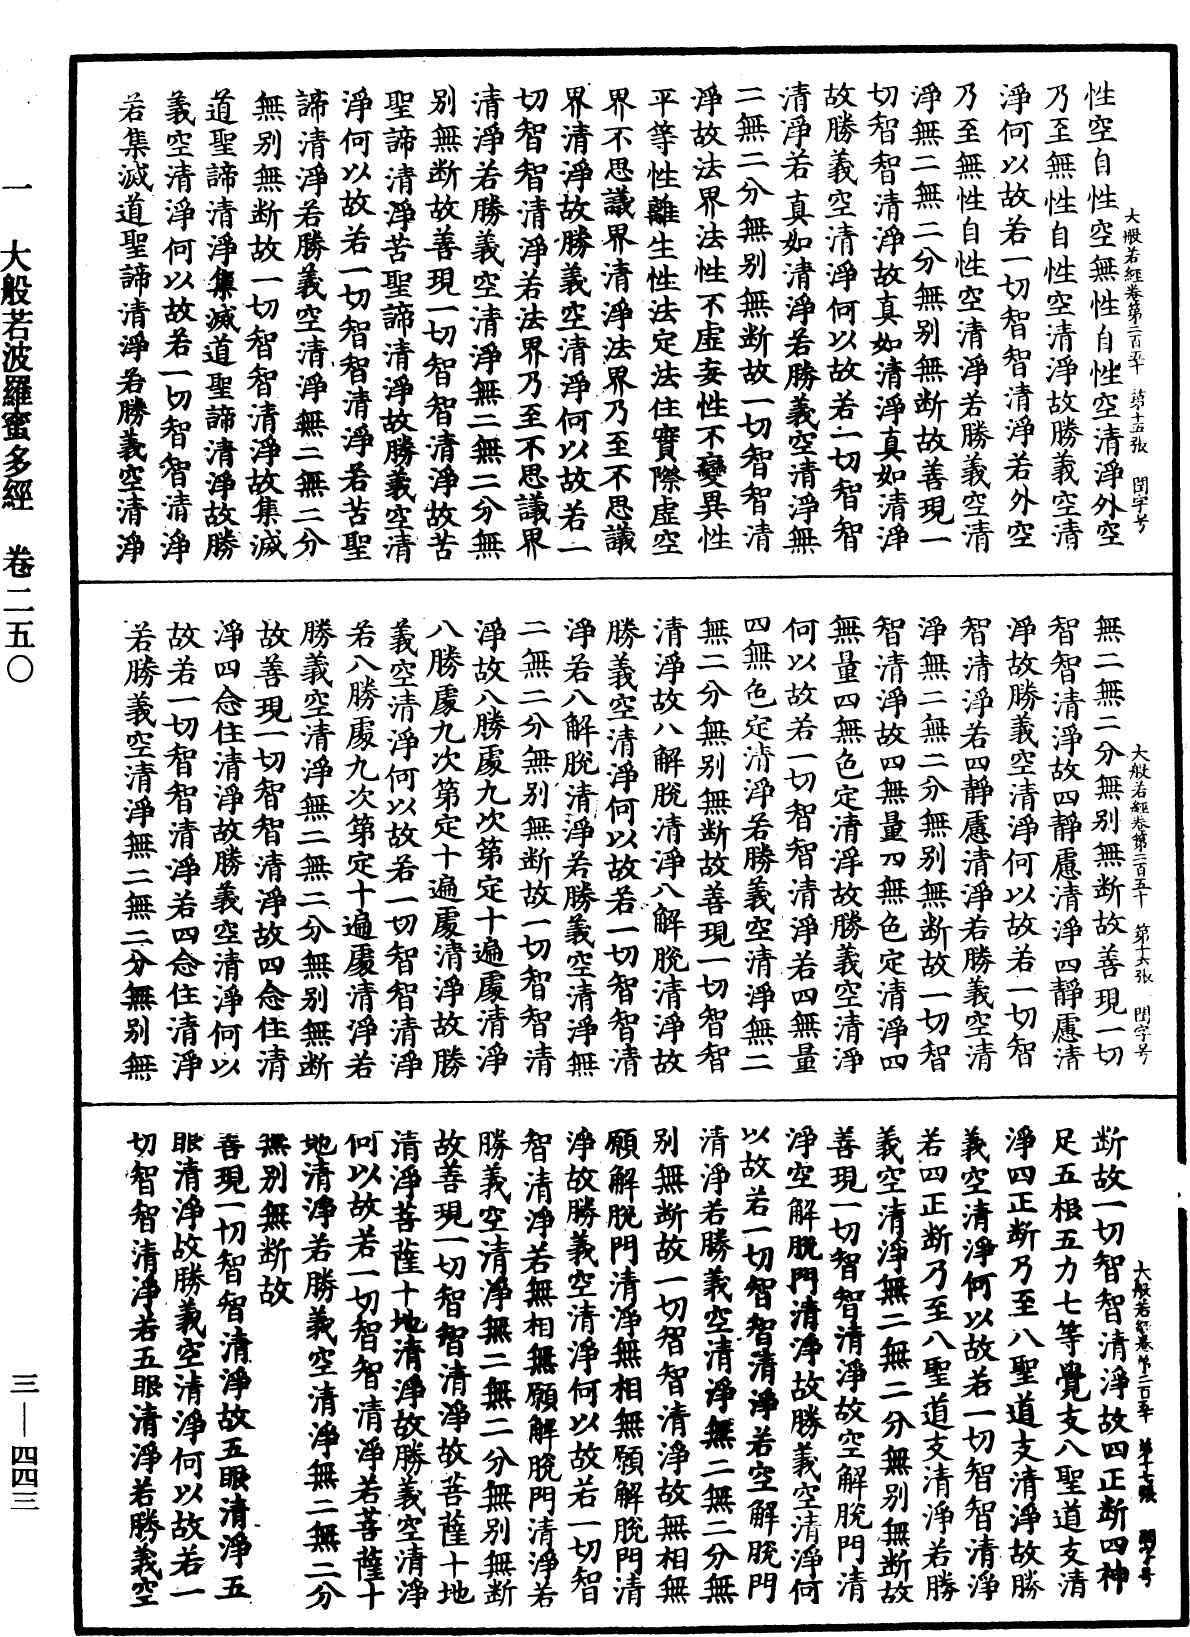 大般若經卷第二百五十　第十五張　閏字号
性空自性空無性自性空清淨外空
乃至無性自性空清淨故勝義空清
淨何以故若一切智智清淨若外空
乃至無性自性空清淨若勝義空清
淨無二無二分無別無断故善現一
切智智清淨故真如清淨真如清淨
故勝義空清淨何以故若一切智智
清淨若真如清淨若勝義空清淨無
二無二分無別無断故一切智智清
淨故法界法性不虛妄性不變異性
平等性離生性法定法住實際虛空
界不思議界清淨法界乃至不思議
界清淨故勝義空清淨何以故若一
切智智清淨若法界乃至不思議界
清淨若勝義空清淨無二無二分無
別無断故善現一切智智清淨故苦
聖諦清淨苦聖諦清淨故勝義空清
淨何以故若一切智智清淨若苦聖
諦清淨若勝義空清淨無二無二分
無別無断故一切智智清淨故集滅
道聖諦清淨集滅道聖諦清淨故勝
義空清淨何以故若一切智智清淨
若集滅道聖諦清淨若勝義空清淨
大般若經卷第二百五十　第十六張　閏字号
無二無二分無別無断故善現一切
智智清淨故四靜慮清淨四靜慮清
淨故勝義空清淨何以故若一切智
智清淨若四靜慮清淨若勝義空清
淨無二無二分無別無断故一切智
智清淨故四無量四無色定清淨四
無量四無色定清淨故勝義空清淨
何以故若一切智智清淨若四無量
四無色定清淨若勝義空清淨無二
無二分無別無断故善現一切智智
清淨故八解脫清淨八解脫清淨故
勝義空清淨何以故若一切智智清
淨若八解脫清淨若勝義空清淨無
二無二分無別無断故一切智智清
淨故八勝處九次第定十遍處清淨
八勝處九次第定十遍處清淨故勝
義空清淨何以故若一切智智清淨
若八勝處九次第定十遍處清淨若
勝義空清淨無二無二分無別無断
故善現一切智智清淨故四念住清
淨四念住清淨故勝義空清淨何以
故若一切智智清淨若四念住清淨
若勝義空清淨無二無二分無別無
大般若經卷第二百五十　第十七張　閏字号
断故一切智智清淨故四正断四神
足五根五力七等覺支八聖道支清
淨四正断乃至八聖道支清淨故勝
義空清淨何以故若一切智智清淨
若四正断乃至八聖道支清淨若勝
義空清淨無二無二分無別無断故
善現一切智智清淨故空解脫門清
淨空解脫門清淨故勝義空清淨何
以故若一切智智清淨若空解脫門
清淨若勝義空清淨無二無二分無
別無断故一切智智清淨故無相無
願解脫門清淨無相無願解脫門清
淨故勝義空清淨何以故若一切智
智清淨若無相無願解脫門清淨若
勝義空清淨無二無二分無別無断
故善現一切智智清淨故菩薩十地
清淨菩薩十地清淨故勝義空清淨
何以故若一切智智清淨若菩薩十
地清淨若勝義空清淨無二無二分
無別無断故
善現一切智智清淨故五眼清淨五
眼清淨故勝義空清淨何以故若一
切智智清淨若五眼清淨若勝義空
一　大般若波羅蜜多經　卷二五〇
三—四四三